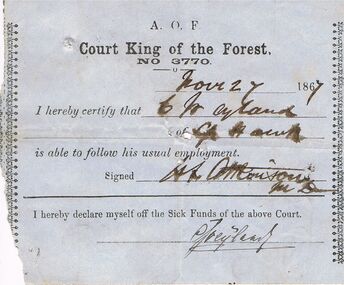 A. O. F
Court King of the Forest,
NO 3770.
Novr 27 1867
I hereby certify that C Weyland
of
is able to follow his usual employment.
Signed H L Atkinson
M D
I hereby declare myself off the Sick Funds of the above Court.
C Weyland